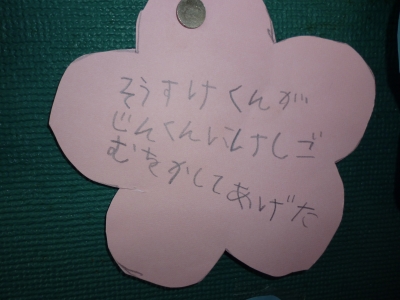 そうすけくんが
じんくんにけしご
むをかしてあげた